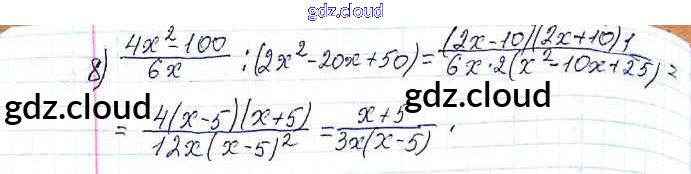 gdz.cloud
8) (4x²-100)/(6x) : (2x²-20x+50) = ((2x-10)(2x+10)1)/(6x·2(x²-10x+25)) =
gdz.cloud gdz.cloud
= (4(x-5)(x+5))/(12x(x-5)²) = (x+5)/(3x(x-5)).